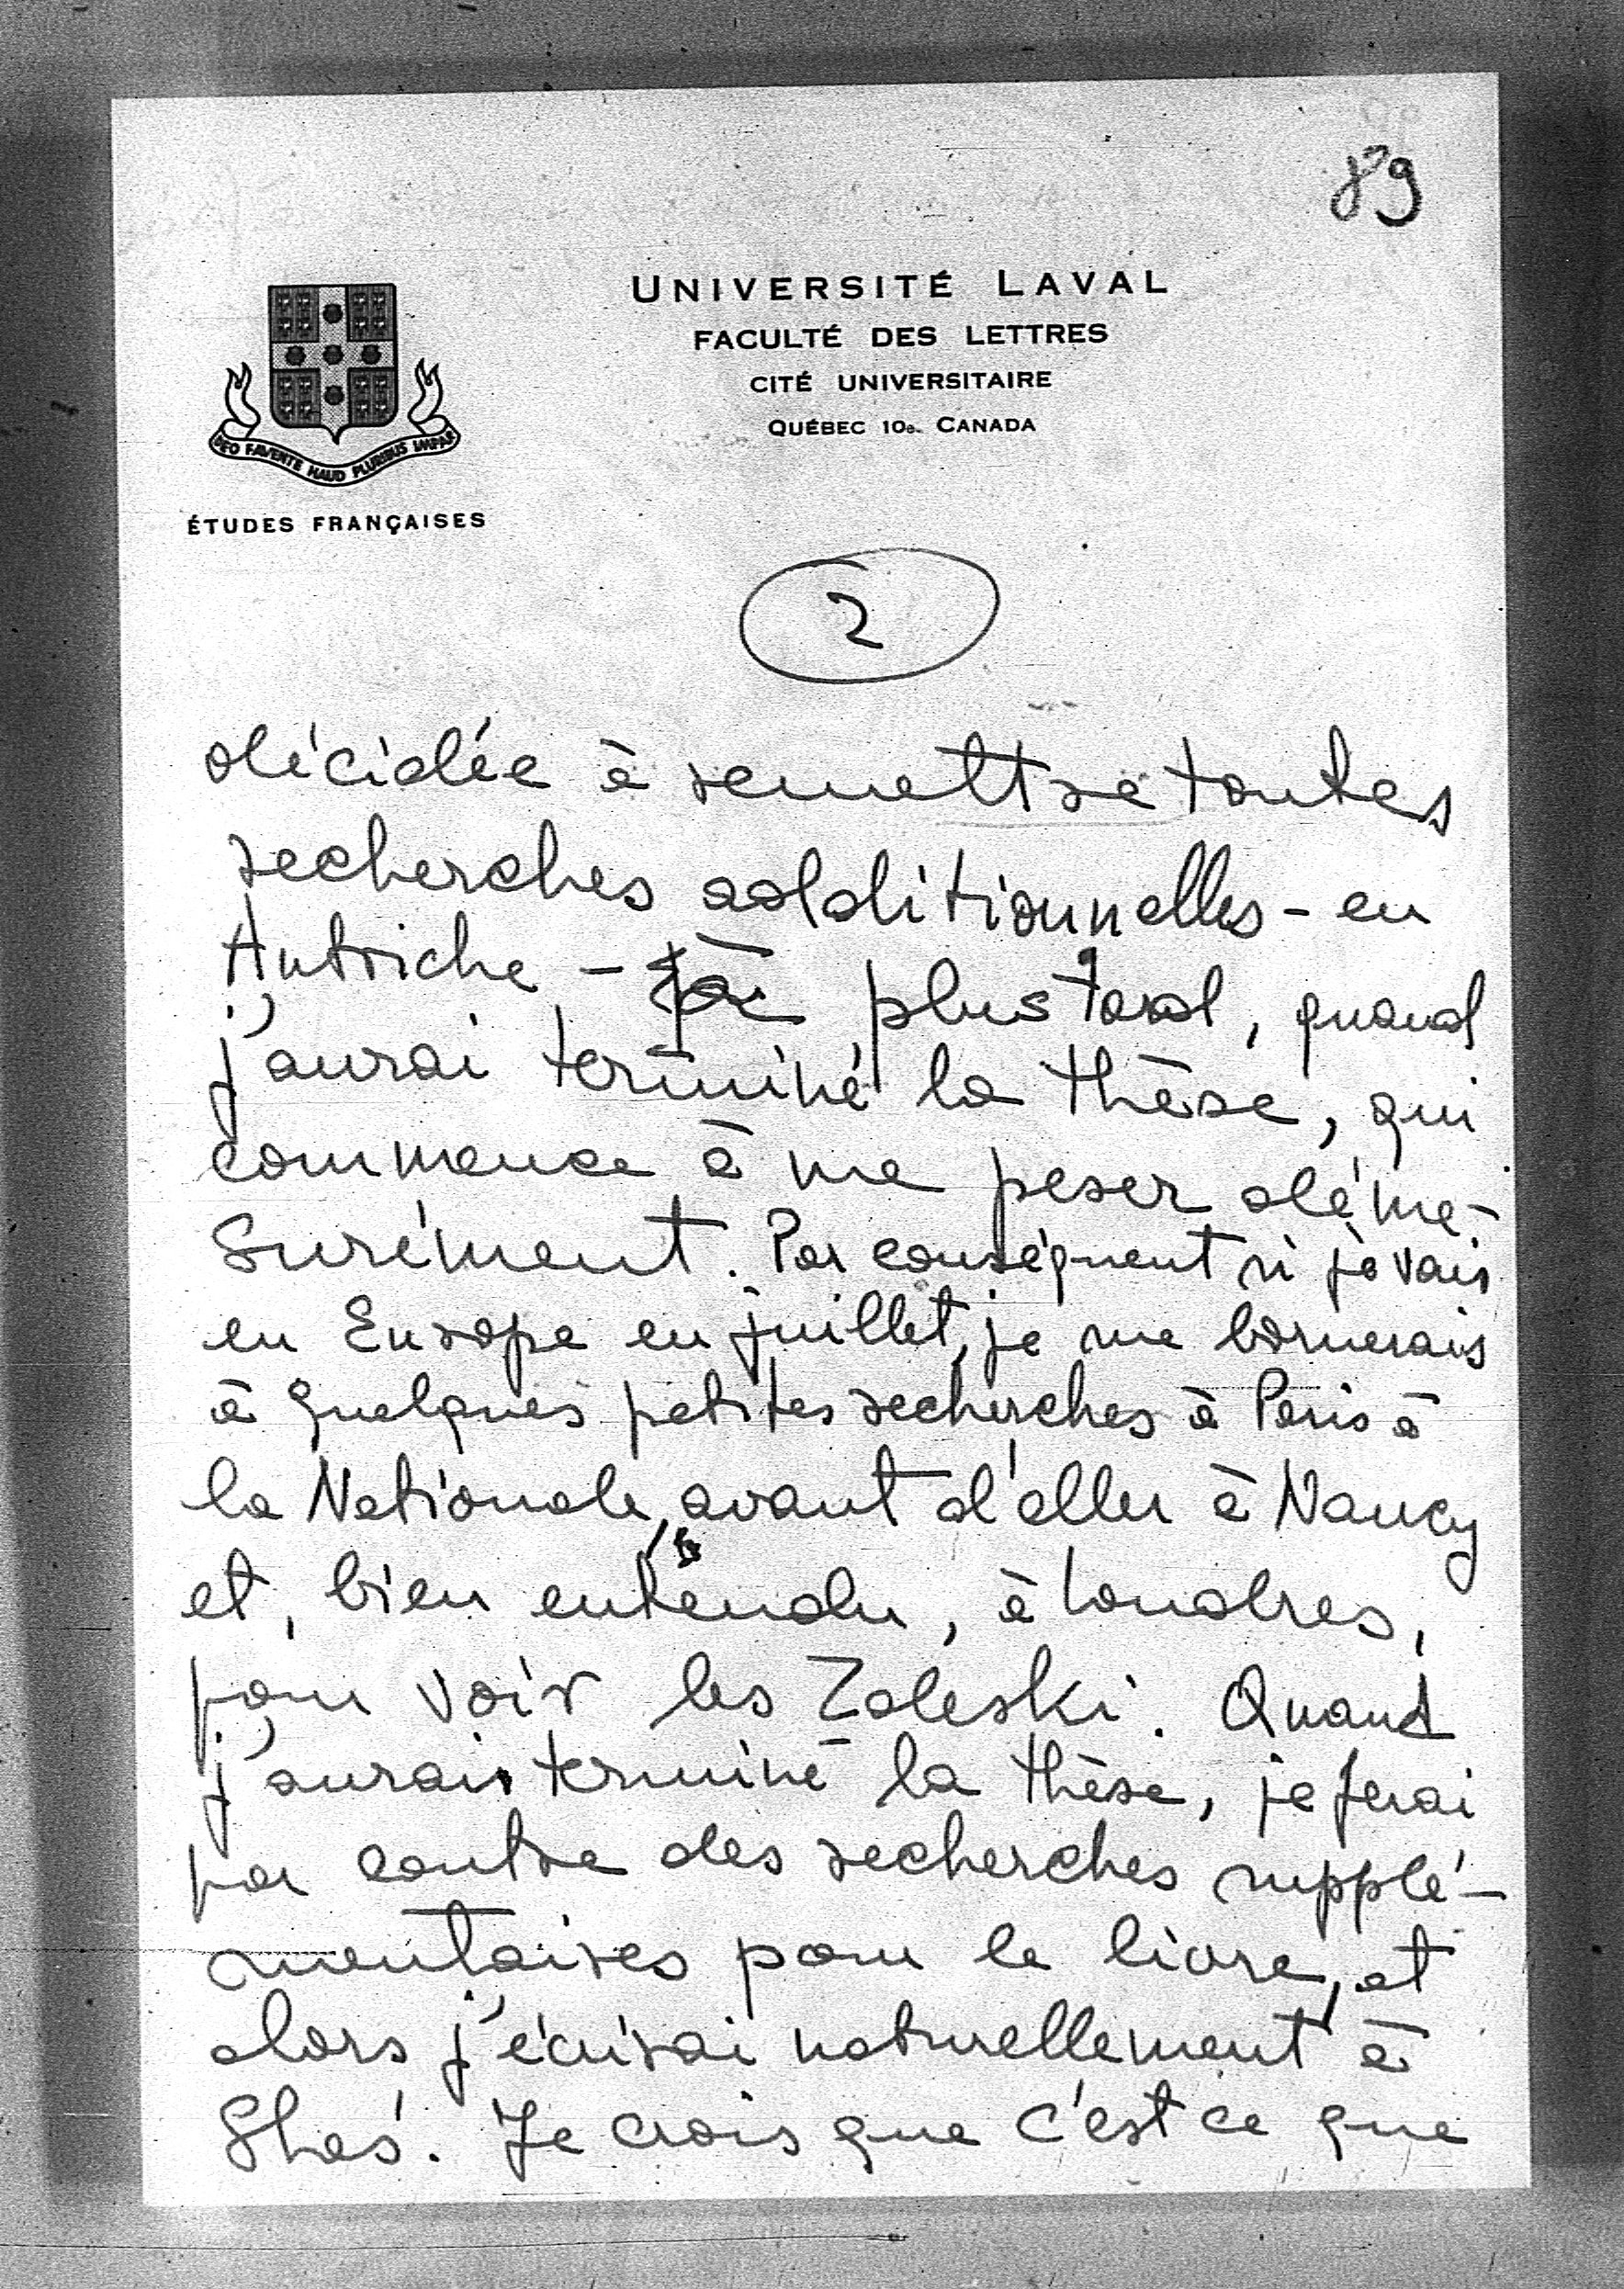 89
UNIVERSITÉ LAVAL
FACULTÉ DES LETTRES
CITÉ UNIVERSITAIRE
QUÉBEC 10e. CANADA
DEO FAVENTE HAUD PLURIBUS IMPAR
ÉTUDES FRANÇAISES
2
décidée à remettre toutes
recherches additionnelles - en
Autriche - à plus tard, quand
j'aurai terminé la thèse, qui
commence à me peser déme-
surément. Par conséquent si je vais
en Europe en juillet, je me bornerais
à quelques petites recherches à Paris à
la Nationale, avant d'aller à Nancy
et, bien entendu, à Londres,
pour voir les Zaleski. Quand
j'aurais terminé la thèse, je ferai
par contre des recherches supplé-
mentaires pour le livre, et
alors j'écrirai naturellement à
Je crois que c'est ce que